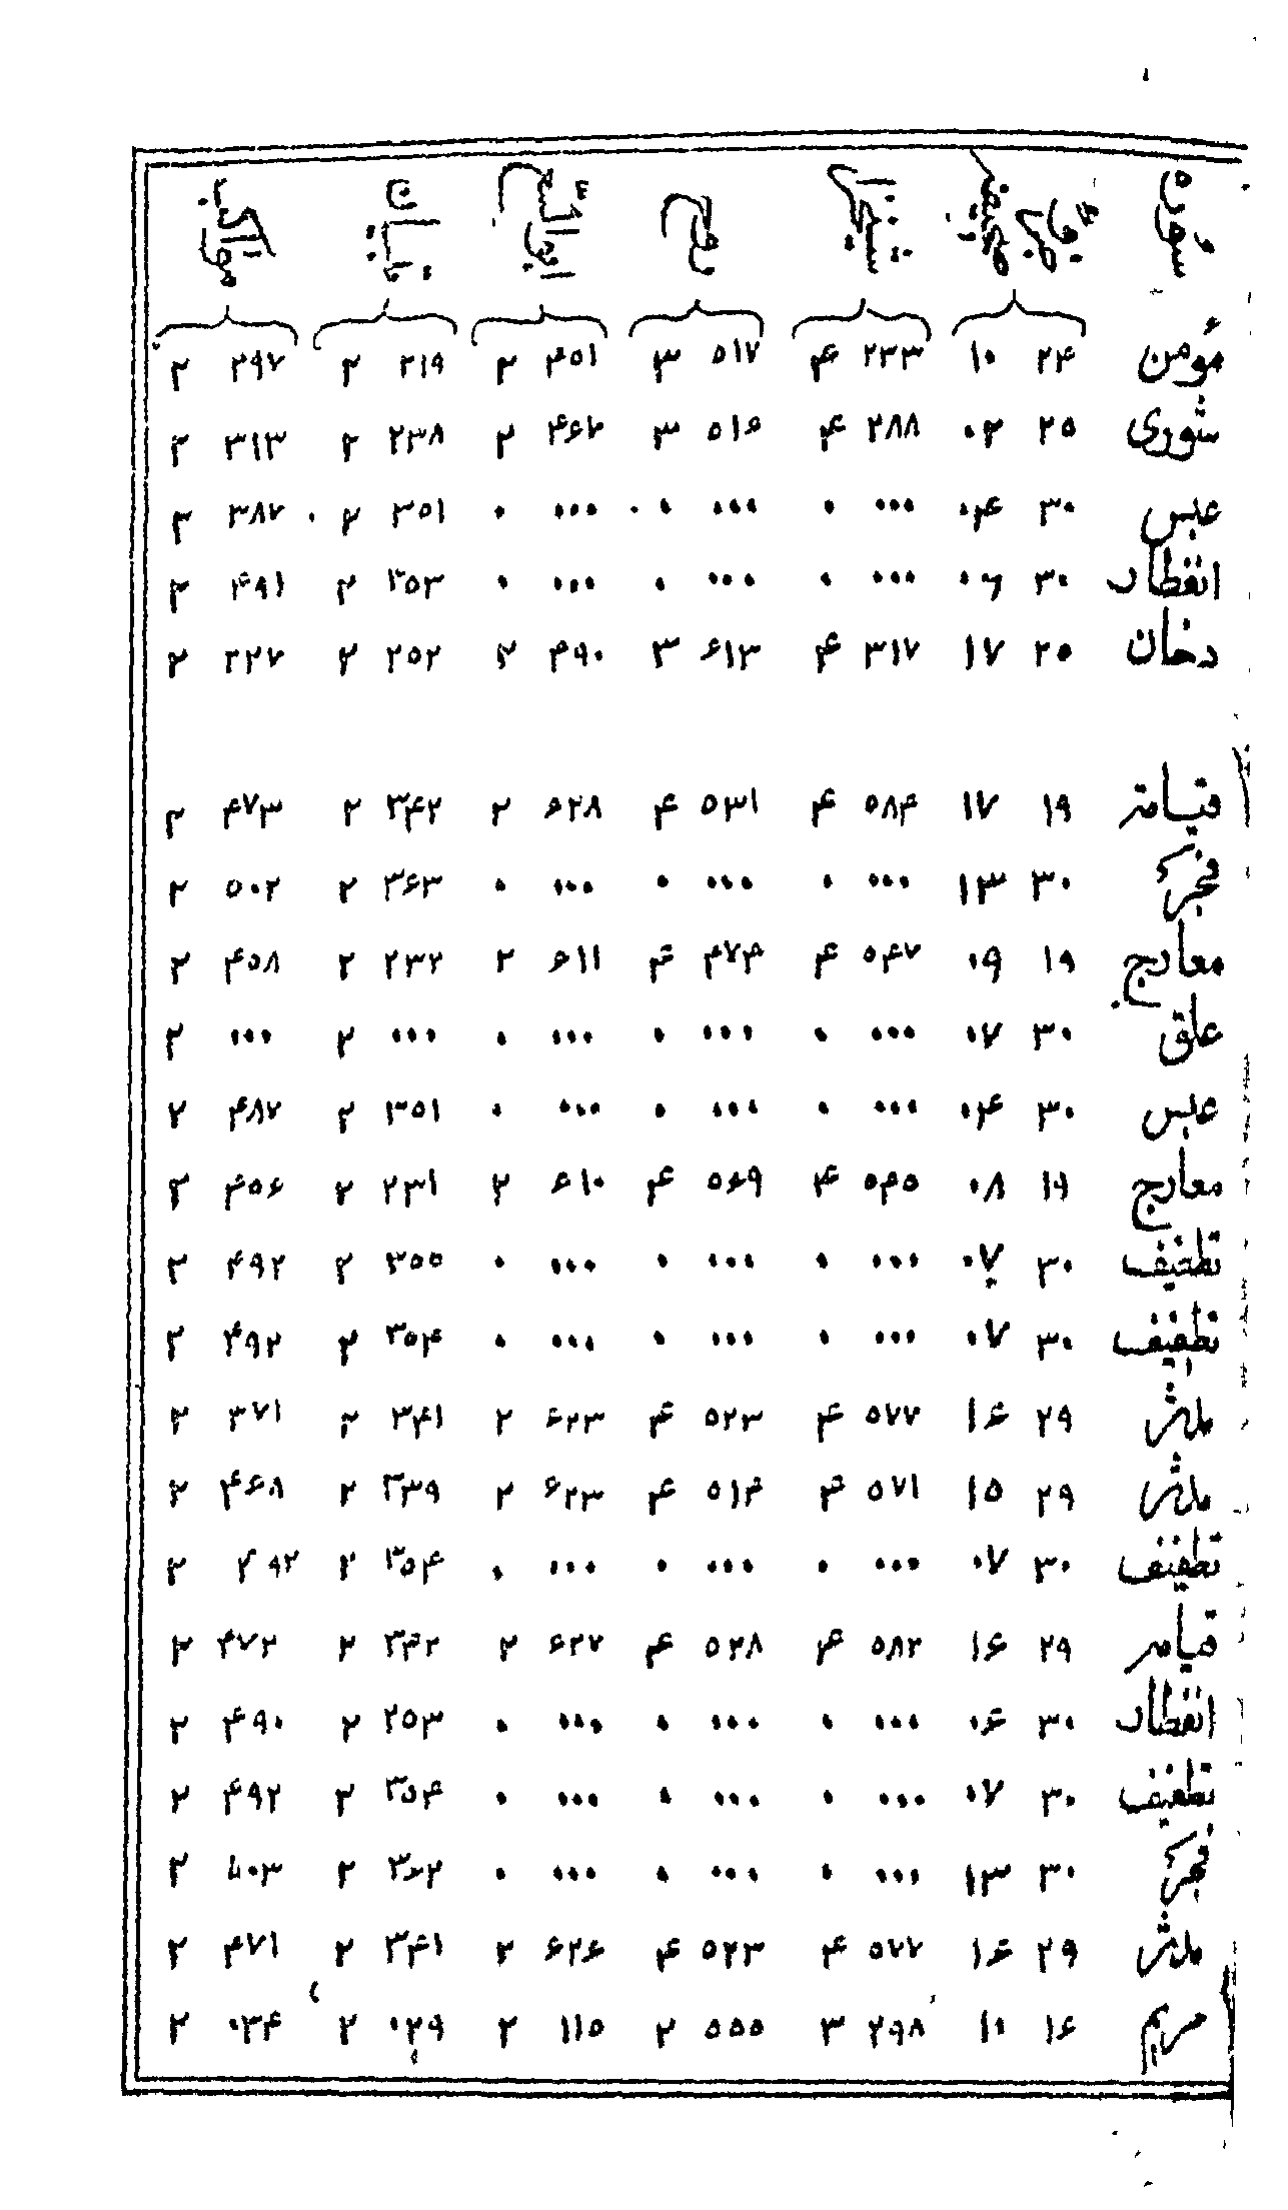 سوره
مؤمن ۲۴ ۱۰ ۲۳۳ ۴ ۵۱۷ ۳ ۴۵۱ ۲ ۲۱۹ ۲ ۲۹۷ ۲
شوری ۲۵ ۰۲ ۲۸۸ ۴ ۵۱۶ ۳ ۴۶۷ ۲ ۲۳۸ ۲ ۳۱۳ ۲
عبس ۳۰ ۰۴ ۰۰۰ ۰ ۰۰۰ ۰ ۰۰۰ ۰ ۳۵۱ ۲ ۳۸۷ ۲
انفطار ۳۰ ۰۶ ۰۰۰ ۰ ۰۰۰ ۰ ۰۰۰ ۰ ۳۵۳ ۲ ۴۹۱ ۲
دخان ۲۵ ۱۷ ۳۱۷ ۴ ۶۱۳ ۳ ۴۹۰ ۲ ۲۵۲ ۲ ۲۲۷ ۲
قیامة ۱۹ ۱۷ ۵۸۴ ۴ ۵۳۱ ۴ ۶۲۸ ۲ ۳۴۲ ۲ ۴۷۳ ۲
فجر ۳۰ ۱۳ ۰۰۰ ۰ ۰۰۰ ۰ ۰۰۰ ۰ ۳۶۳ ۲ ۵۰۲ ۲
معارج ۱۹ ۰۹ ۵۴۷ ۴ ۴۷۴ ۴ ۶۱۱ ۲ ۲۳۲ ۲ ۴۵۸ ۲
علق ۳۰ ۰۷ ۰۰۰ ۰ ۰۰۰ ۰ ۰۰۰ ۰ ۰۰۰ ۲ ۰۰۰ ۲
عبس ۳۰ ۰۴ ۰۰۰ ۰ ۰۰۰ ۰ ۰۰۰ ۰ ۳۵۱ ۲ ۴۸۷ ۲
معارج ۱۹ ۰۸ ۵۴۵ ۴ ۵۶۹ ۴ ۶۱۰ ۲ ۲۳۱ ۲ ۴۵۶ ۲
تطفیف ۳۰ ۰۷ ۰۰۰ ۰ ۰۰۰ ۰ ۰۰۰ ۰ ۳۵۵ ۲ ۴۹۲ ۲
تطفیف ۳۰ ۰۷ ۰۰۰ ۰ ۰۰۰ ۰ ۰۰۰ ۰ ۳۵۴ ۲ ۴۹۲ ۲
مدثر ۲۹ ۱۶ ۵۷۷ ۴ ۵۲۳ ۴ ۶۲۳ ۲ ۳۴۱ ۲ ۳۷۱ ۲
مدثر ۲۹ ۱۵ ۵۷۱ ۴ ۵۱۴ ۴ ۶۲۳ ۲ ۳۳۹ ۲ ۴۶۸ ۲
تطفیف ۳۰ ۰۷ ۰۰۰ ۰ ۰۰۰ ۰ ۰۰۰ ۰ ۳۵۴ ۲ ۴۹۲ ۲
قیامہ ۲۹ ۱۶ ۵۸۲ ۴ ۵۲۸ ۴ ۶۲۷ ۲ ۳۴۲ ۲ ۴۷۲ ۲
انفطار ۳۰ ۰۶ ۰۰۰ ۰ ۰۰۰ ۰ ۰۰۰ ۰ ۲۵۳ ۲ ۴۹۰ ۲
تطفیف ۳۰ ۰۷ ۰۰۰ ۰ ۰۰۰ ۰ ۰۰۰ ۰ ۳۵۴ ۲ ۴۹۲ ۲
فجر ۳۰ ۱۳ ۰۰۰ ۰ ۰۰۰ ۰ ۰۰۰ ۰ ۳۶۲ ۲ ۲
مدثر ۲۹ ۱۶ ۵۷۷ ۴ ۵۲۳ ۴ ۶۲۶ ۲ ۳۴۱ ۲ ۴۷۱ ۲
مریم ۱۶ ۱۰ ۲۹۸ ۳ ۵۵۵ ۲ ۱۱۵ ۲ ۰۲۹ ۲ ۰۳۴ ۲